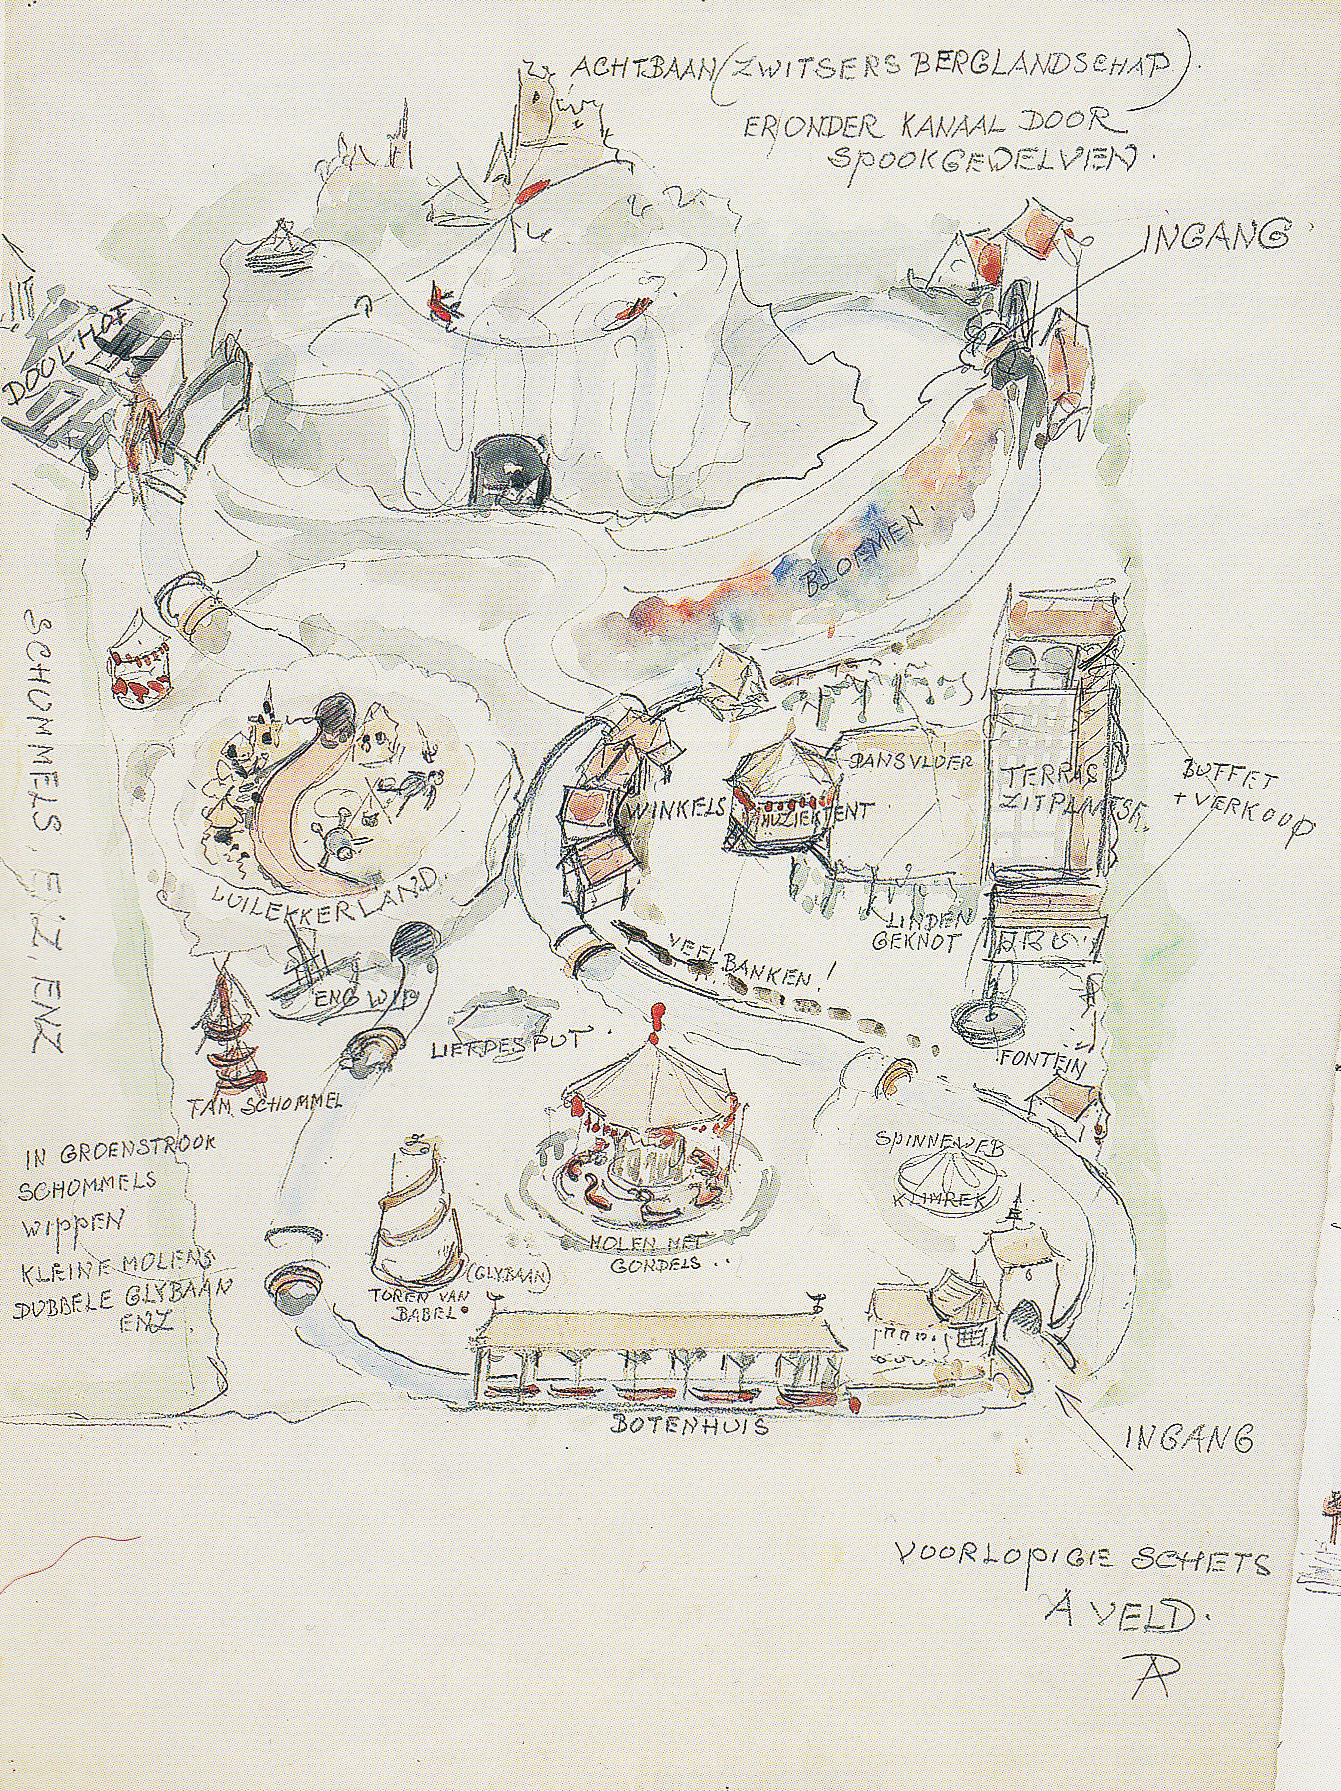 ACHTBAAN (ZWITSERS BERGLANDSCHAP).
ERONDER KANAAL DOOR
SPOOKGEDELVEN.
INGANG
DOOLHOF
BLOEMEN.
SCHOMMELS, ENZ, ENZ
DANSVLOER
TERRAS
ZITPLAATS.
BUFFET
+ VERKOOP
WINKELS
MUZIEKTENT
LUILEKKERLAND.
LINDEN
GEKNOT
VEEL BANKEN!
ENG WIP
LIEFDESPUT.
FONTEIN
TAM. SCHOMMEL
IN GROENSTROOK
SCHOMMELS
WIPPEN
KLEINE MOLENS
DUBBELE GLYBAAN
ENZ.
SPINNEWEB
KLIMREK
MOLEN MET
GONDELS ..
(GLYBAAN)
TOREN VAN
BABEL.
BOTENHUIS
INGANG
VOORLOPIGE SCHETS
A VELD.
AP